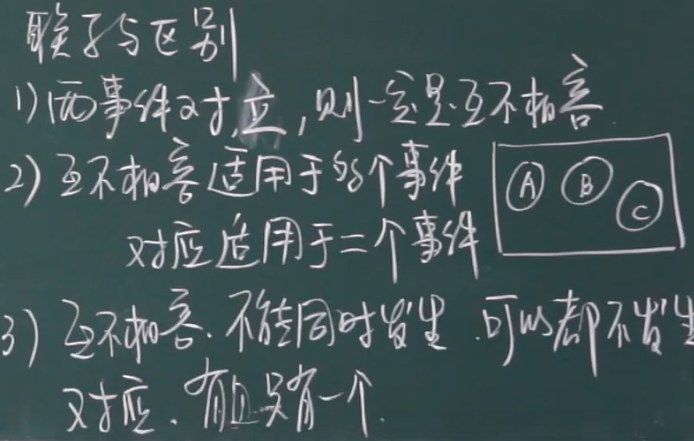 联系与区别
1)两事件对立,则一定是互不相容
2)互不相容适用于多个事件
A B C
对应适用于二个事件
3)互不相容.不能同时发生.可以都不发生
对应.有且只有一个.